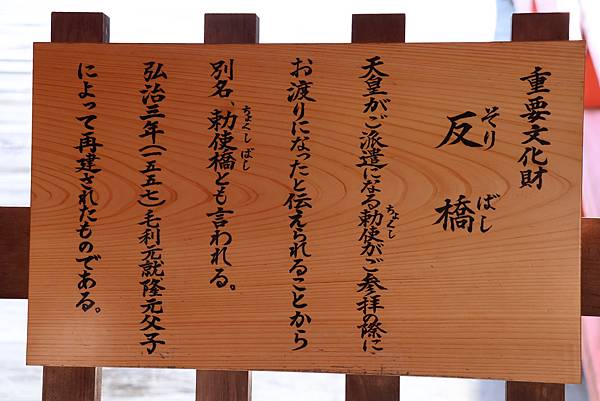 重要文化財
反橋
そりばし
天皇がご派遣になる勅使がご参拝の際に
ちょくし
お渡りになったと伝えられることから
別名、勅使橋とも言われる。
ちょくしばし
弘治三年(一五五七)毛利元就隆元父子
によって再建されたものである。